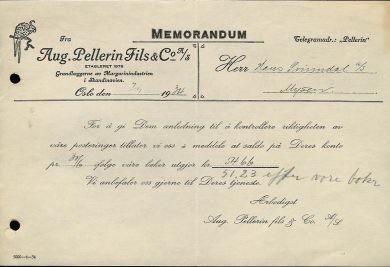 MEMORANDUM
Fra
Telegramadr.: "Pellerin"
Aug. Pellerin Fils & Co A/S
ETABLERET 1876
Grundlæggerne av Margarinindustrien
i Skandinavien.
Herr Hans A/S
Mysen
Oslo den 7/9 1934
For å gi Dem anledning til å kontrollere riktigheten av
våre posteringer tillater vi oss å meddele at saldo på Deres konto
pr. ifølge våre bøker utgjør kr. 5466
51.23 efter vore bøker
Vi anbefaler oss gjerne til Deres tjeneste.
Ærbødigst
Aug. Pellerin fils & Co. A/S